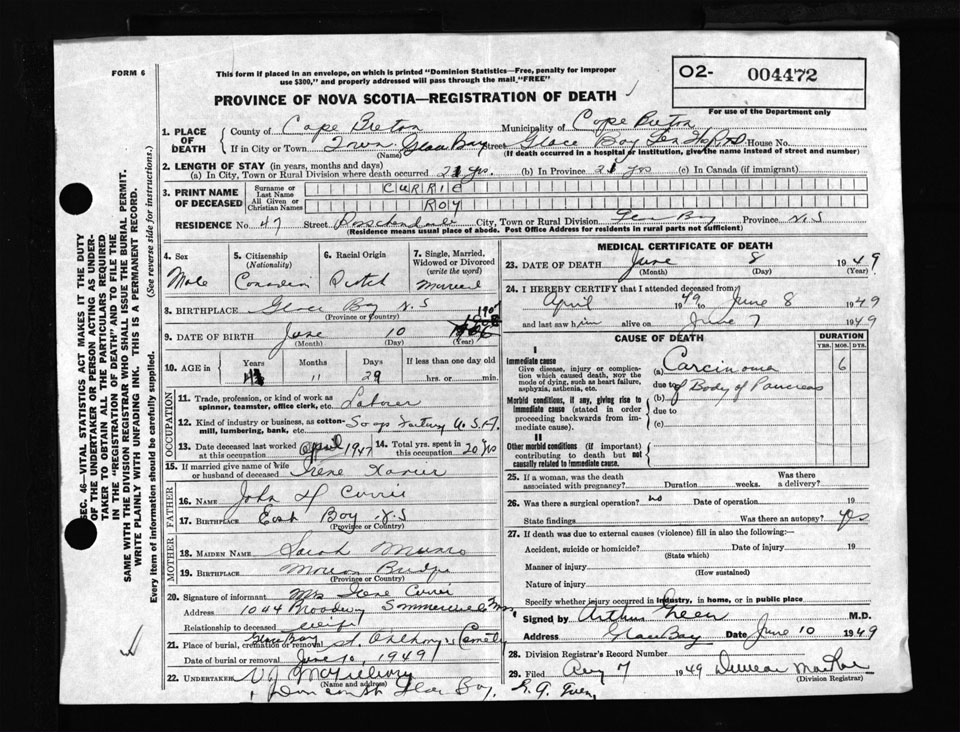 FORM 6
This form if placed in an envelope, on which is printed "Dominion Statistics—Free, penalty for improper
use $300," and properly addressed will pass through the mail "FREE"
O2- 004472
For use of the Department only
PROVINCE OF NOVA SCOTIA—REGISTRATION OF DEATH
1. PLACE OF DEATH
County of Cape Breton Municipality of Cape Breton
If in City or Town Town Glace Bay Street Glace Bay House No.
(Name) (If death occurred in a hospital or institution, give the name instead of street and number)
2. LENGTH OF STAY (in years, months and days)
(a) In City, Town or Rural Division where death occurred 21 yrs. (b) In Province 21 yrs (c) In Canada (if immigrant)
3. PRINT NAME OF DECEASED
Surname or Last Name CURRIE
All Given or Christian Names ROY
RESIDENCE No. 47 Street City, Town or Rural Division Glace Bay Province N.S
(Residence means usual place of abode. Post Office Address for residents in rural parts not sufficient)
4. Sex Male
5. Citizenship (Nationality) Canadian
6. Racial Origin
7. Single, Married, Widowed or Divorced (write the word) Married
8. BIRTHPLACE Glace Bay N.S
(Province or Country)
9. DATE OF BIRTH June 10
(Month) (Day) (Year)
10. AGE in Years Months 11 Days 29 If less than one day old hrs. or min.
OCCUPATION
11. Trade, profession, or kind of work as spinner, teamster, office clerk, etc. Laborer
12. Kind of industry or business, as cotton-mill, lumbering, bank, etc. Soap Factory U.S.A.
13. Date deceased last worked at this occupation April 1947 14. Total yrs. spent in this occupation 20 yrs
15. If married give name of wife or husband of deceased Irene Xavier
FATHER
16. NAME John H Currie
17. BIRTHPLACE East Bay N.S
(Province or Country)
MOTHER
18. MAIDEN NAME Sarah Munro
19. BIRTHPLACE Marion Bridge
(Province or Country)
20. Signature of informant Mrs Irene Currie
Address 1044 Broadway Sommerville Mass
Relationship to deceased wife
21. Place of burial, cremation or removal Glace Bay St. Anthony's Cemetery
Date of burial or removal June 10 1949
22. UNDERTAKER V.J. McGillivary
(Name and address)
Glace Bay.
MEDICAL CERTIFICATE OF DEATH
23. DATE OF DEATH June 8 1949
(Month) (Day) (Year)
24. I HEREBY CERTIFY that I attended deceased from
April 1949 to June 8 1949
and last saw him alive on June 7 1949
CAUSE OF DEATH
DURATION
YRS. MOS. DYS.
I
Immediate cause
Give disease, injury or complication which caused death, NOT the mode of dying, such as heart failure, asphyxia, asthenia, etc.
(a) Carcinoma 6
due to of Body of Pancreas
Morbid conditions, if any, giving rise to immediate cause (stated in order proceeding backwards from immediate cause).
(b)
due to
(c)
II
Other morbid conditions (if important) contributing to death but not causally related to immediate cause.
25. If a woman, was the death associated with pregnancy? Duration weeks. Was there a delivery?
26. Was there a surgical operation? no Date of operation 19
State findings Was there an autopsy? yes
27. If death was due to external causes (violence) fill in also the following:—
Accident, suicide or homicide? Date of injury 19
(State which)
Manner of injury
(How sustained)
Nature of injury
Specify whether injury occurred in industry, in home, or in public place
Signed by Arthur Green M.D.
Address Glace Bay Date June 10 1949
28. Division Registrar's Record Number
29. Filed Aug 7 1949 Duncan MacRae
(Division Registrar)
SEC. 46—VITAL STATISTICS ACT MAKES IT THE DUTY
OF THE UNDERTAKER OR PERSON ACTING AS UNDERTAKER
TO OBTAIN ALL THE PARTICULARS REQUIRED
IN THE "REGISTRATION OF DEATH" AND TO FILE THE
SAME WITH THE DIVISION REGISTRAR WHO SHALL ISSUE THE BURIAL PERMIT.
WRITE PLAINLY WITH UNFADING INK. THIS IS A PERMANENT RECORD.
Every item of information should be carefully supplied. (See reverse side for instructions.)